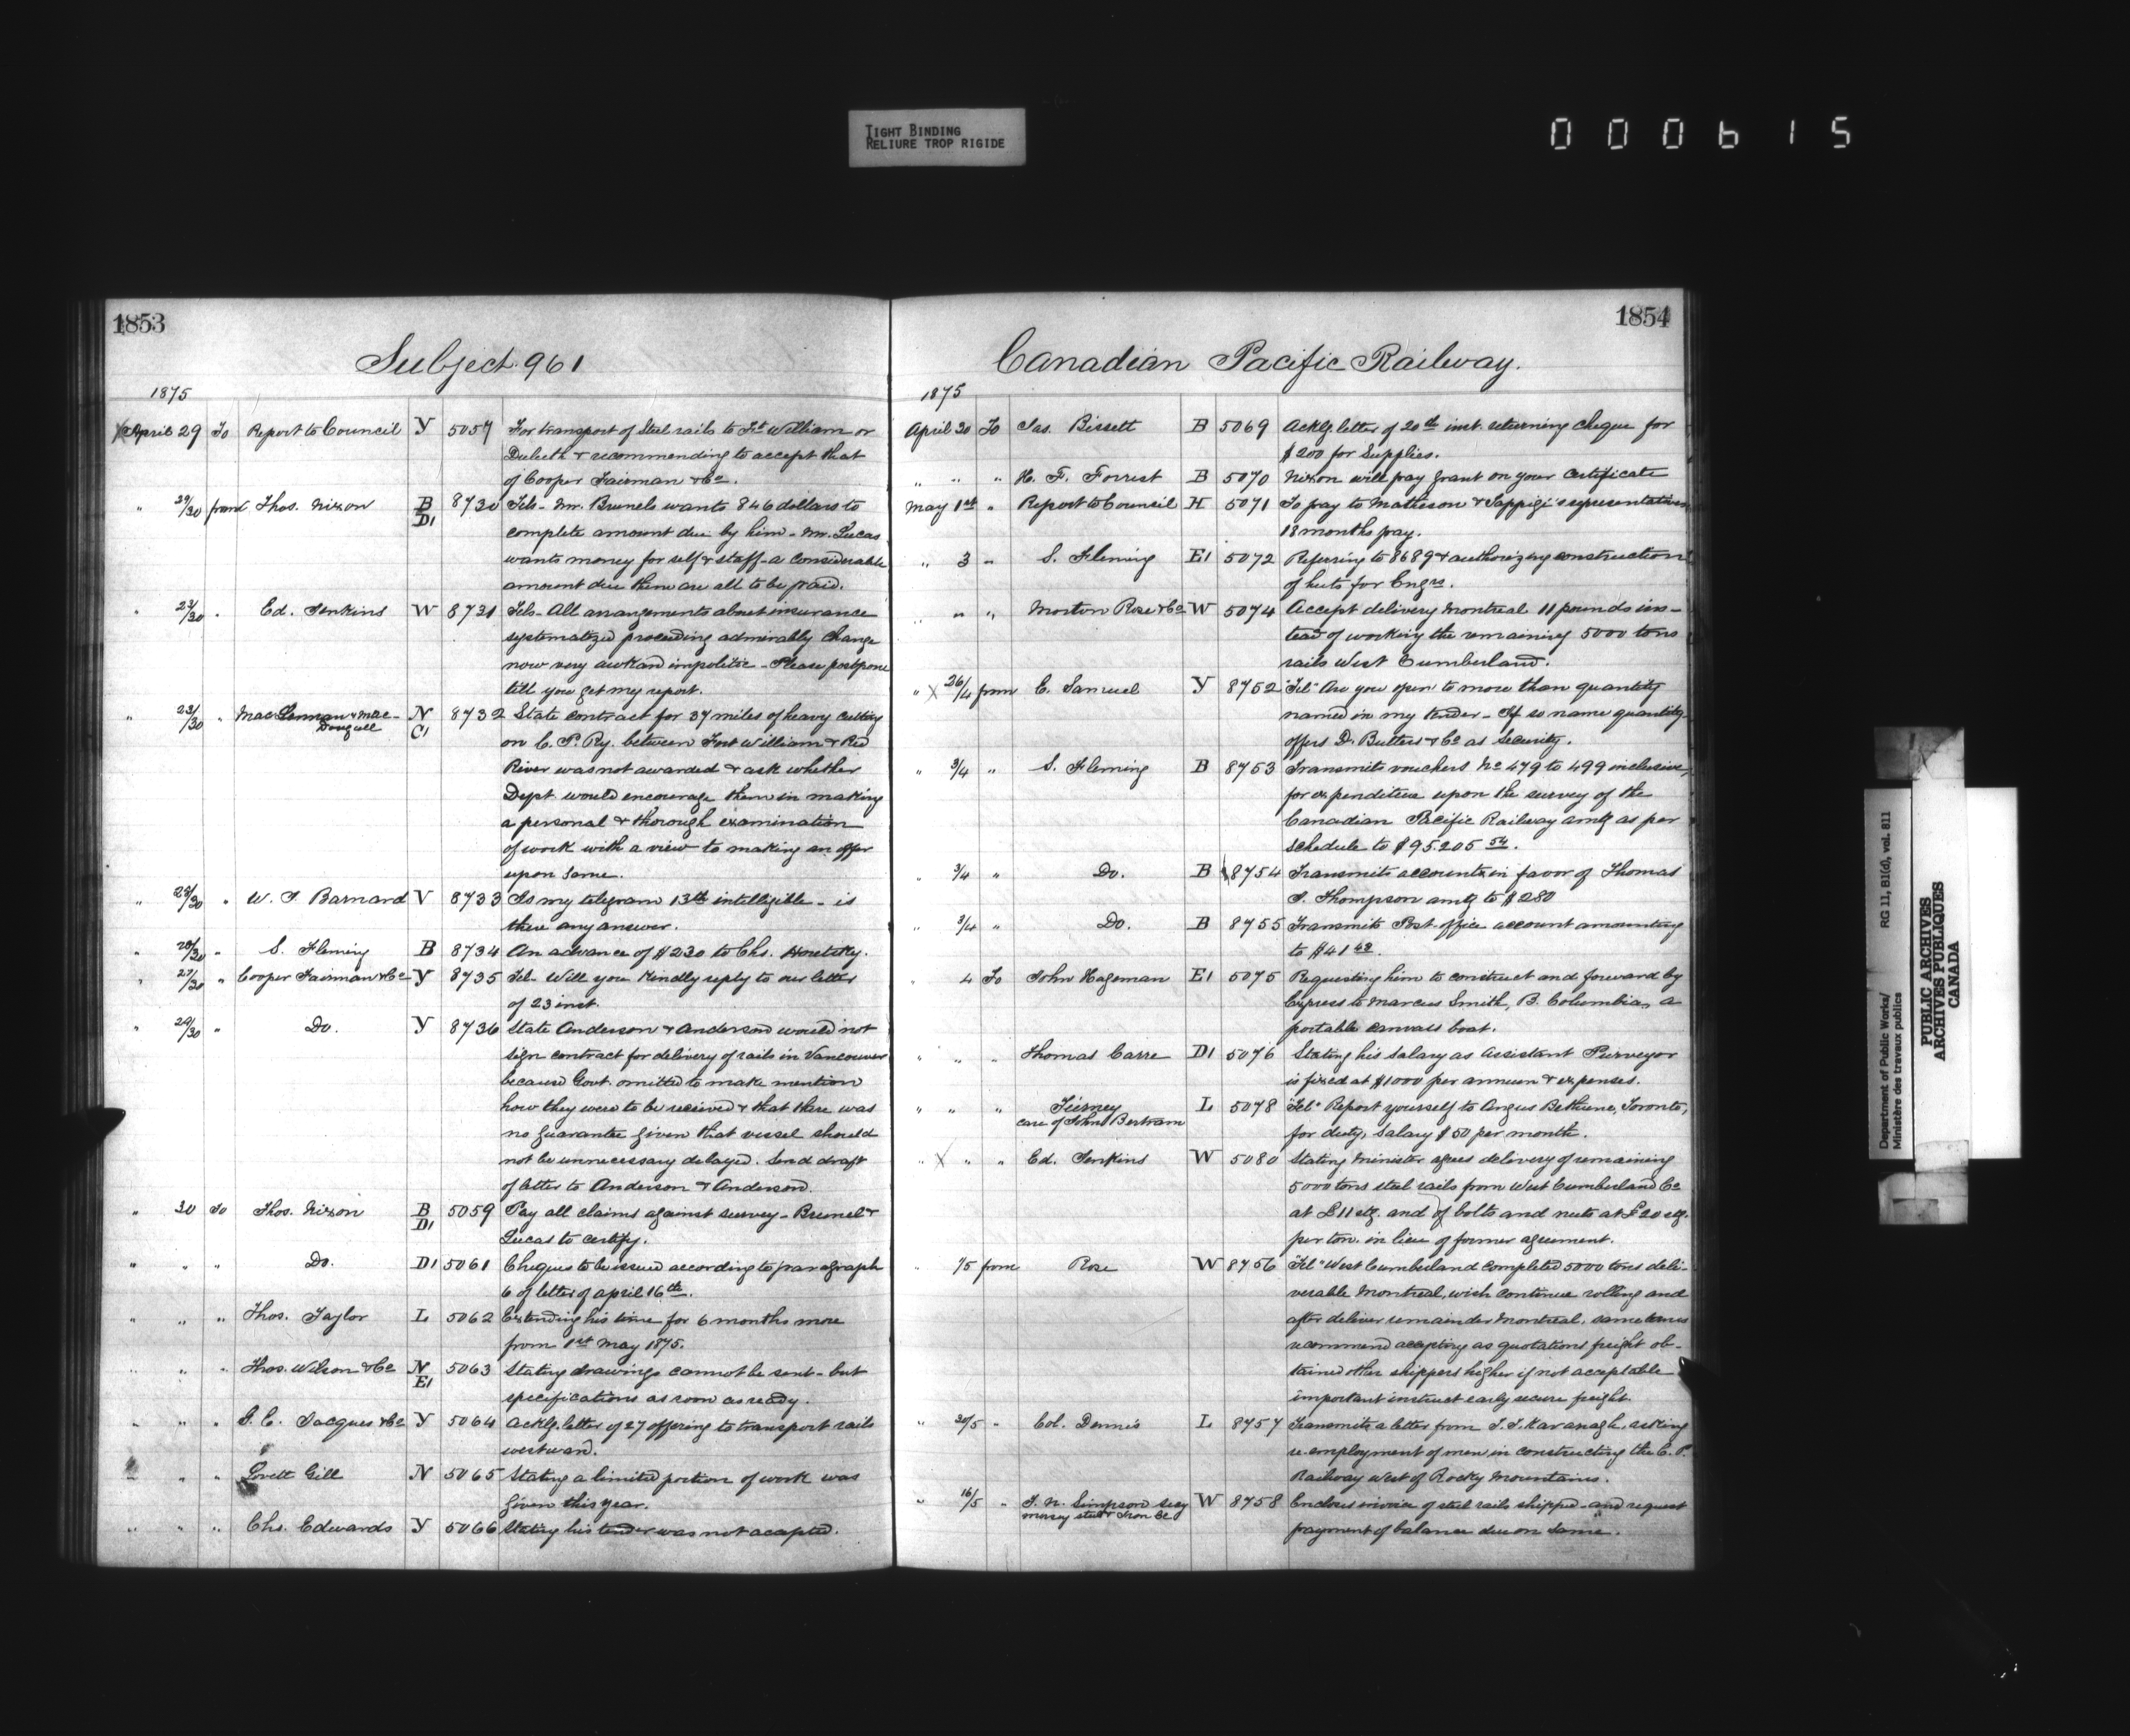 TIGHT BINDING
RELIURE TROP RIGIDE
000615
1853
Subject 961
1875
April 29 To Report to Council Y 5057 For transport of Steel rails to Ft William or
Duluth & recommending to accept that
of Cooper Fairman & Co.
" 29/30 from Thos. Nixon B D1 8730 Tels- Mr. Brunels wants 846 dollars to
complete amount due by him - Mr. Lucas
wants money for self & staff - a considerable
amount due them are all to be paid.
" /30 " Ed. Jenkins W 8731 Tels- All arrangements about insurance
systematized proceeding admirably change
now very awkard impolitic - Please postpone
till you get my report.
" 23/30 " MacLennan & Mac-
Dougall N C1 8732 State contract for 37 miles of heavy cutting
on C. P. Ry. between Fort William & Red
River was not awarded & ask whether
Dept. would encourage them in making
a personal & thorough examination
of work with a view to making an offer
upon same.
" /30 " W. Barnard V 8733 Is my telegram 13th intelligible - is
there any answer.
" 28/30 " S. Fleming B 8734 An advance of $230 to Chs. Horetzky.
" 27/30 " Cooper Fairman & Co Y 8735 Tel- Will you kindly reply to our letter
of 23 inst.
" /30 " Do. Y 8736 State Anderson & Anderson would not
sign contract for delivery of rails in Vancouver
because Govt. omitted to make mention
how they were to be received & that there was
no guarantee given that vessel should
not be unnecessary delayed. Send draft
of letter to Anderson & Anderson.
" 30 To Thos. Nixon B D1 5059 Pay all claims against survey - Brunel &
Lucas to certify.
" " " Do. D1 5061 Cheques to be issued according to paragraph
6 of letter of april 16th.
" " " Thos. Taylor L 5062 Extending his time for 6 months more
from 1st May 1875.
" " " Thos. Wilson & Co N E1 5063 Stating drawings cannot be sent - but
specifications as soon as ready.
" " " G. E. Jacques & Co Y 5064 Ackly. letter of 27 offering to transport rails
westward.
" " " Lovett Gill N 5065 Stating a limited portion of work was
given this year.
" " " Chs. Edwards Y 5066 Stating his tender was not accepted.
1854
Canadian Pacific Railway.
1875
April 30 To Jas. Bissett B 5069 Ackly. letter of 20th inst. returning cheque for
$200 for Supplies.
" " " H. F. Forrest B 5070 Nixon will pay Grant on your Certificate
May 1st " Report to Council H 5071 To pay to Matheson & representatives
18 months pay.
" 3 " S. Fleming E1 5072 Referring to 8689 & authorizing construction
of huts for Engrs.
" " " Morton Rose & Co W 5074 Accept delivery Montreal 11 pounds ins-
tead of working the remaining 5000 tons
rails West Cumberland.
" X 26/4 from E. Samuel Y 8752 "Tel" Are you open to more than quantity
named in my tender - If so name quantity
offers D. Butters & Co as Security.
" 3/4 " S. Fleming B 8753 Transmits vouchers No 479 to 499 inclusive,
for expenditure upon the survey of the
Canadian Pacific Railway amtg as per
schedule to $95.205 54.
" 3/4 " Do. B 8754 Transmits accounts in favor of Thomas
Thompson amtg to $280
" 3/4 " Do. B 8755 Transmits Post-office account amounting
to $41 48.
" 4 To John Hageman E1 5075 Requesting him to construct and forward by
Express to Marcus Smith, B. Columbia, a
portable canvass boat.
" " " Thomas Carre D1 5076 Stating his salary as Assistant Purveyor
is fixed at $1000 per annum & expenses.
" " " Tierney
care of John Bertram L 5078 "Tel" Report yourself to Angus Bethune, Toronto,
for duty, Salary $50 per month.
" X " " Ed. Jenkins W 5080 Stating Minister agrees delivery of remaining
5000 tons steel rails from West Cumberland Co
at £11 stg. and of bolts and nuts at £20 stg.
per ton. in lieu of former agreement.
" 1/5 from Rose W 8756 "Tel" West Cumberland completed 5000 tons deli-
verable Montreal, wish continue rolling and
after deliver remainder Montreal, same terms
recommend accepting as quotations freight ob-
tained other shippers higher if not acceptable
important instruct early secure freight.
" 30/5 " Col. Dennis L 8757 Transmits a letter from Kavanagh, asking
re-employment of men in constructing the C. P.
Railway west of Rocky Mountains.
" 16/5 " Simpson Secy
Mersey Steel & Iron Co W 8758 Encloses invoice of steel rails shipped - and request
payment of balance due on same.
Department of Public Works/
Ministère des travaux publics
RG 11, B1(d), vol. 811
PUBLIC ARCHIVES
ARCHIVES PUBLIQUES
CANADA